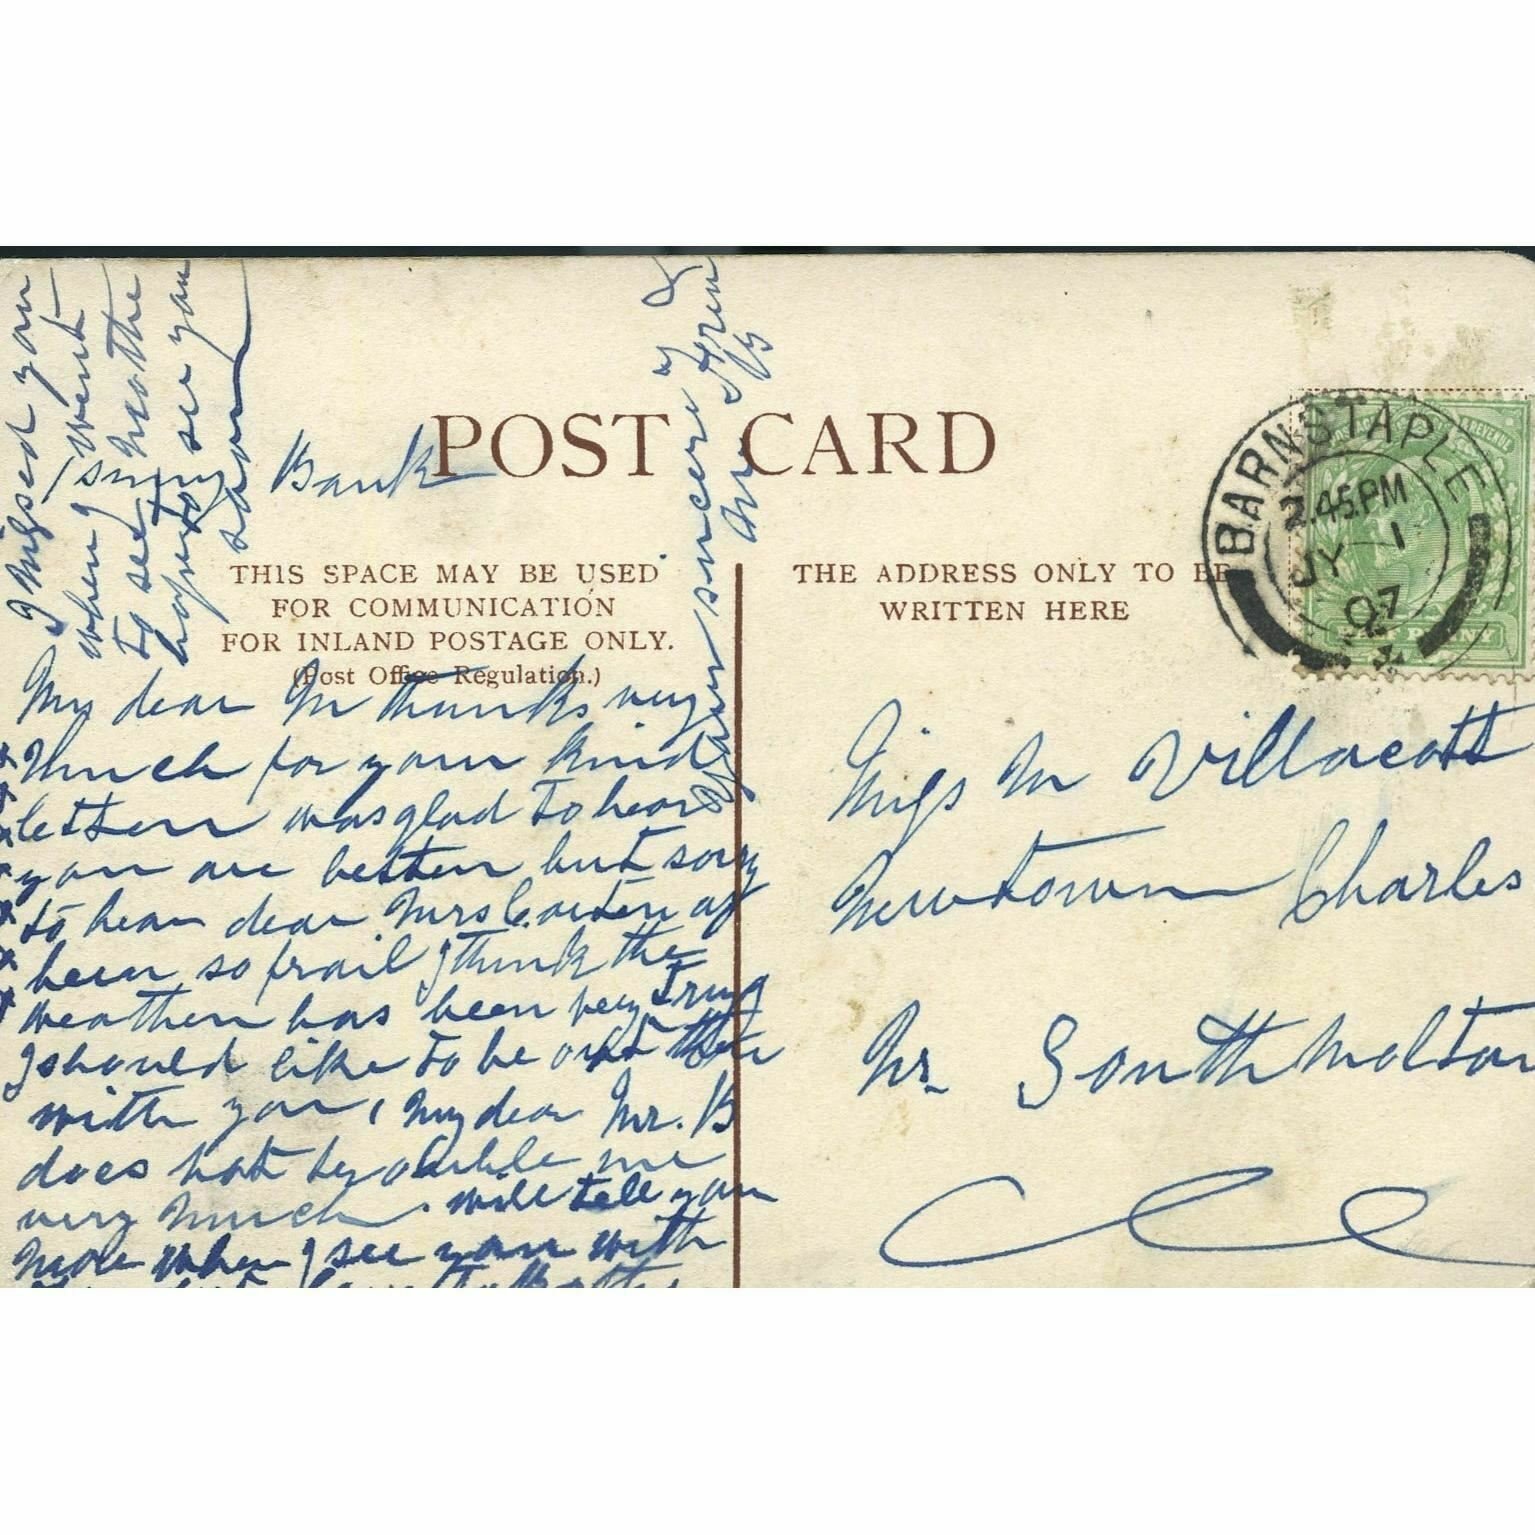 POST CARD
THIS SPACE MAY BE USED
FOR COMMUNICATION
FOR INLAND POSTAGE ONLY.
(Post Office Regulation.)
THE ADDRESS ONLY TO BE
WRITTEN HERE
BARNSTAPLE
2.45PM
JY 1
07
HALF PENNY
Bank
My dear M thanks very
much for your kind
letter was glad to hear
you are better but sorry
to hear dear Mrs Carter as
been so frail I think the
weather has been very trying
I should like to be out there
with you, my dear Mr. B
does not trouble me
very much. will tell you
more when I see you with
I missed you
when I went
to see mother
hope to see you
soon
Yours sincerely
Miss M Villacott
Newtown Charles
Nr. South Molton